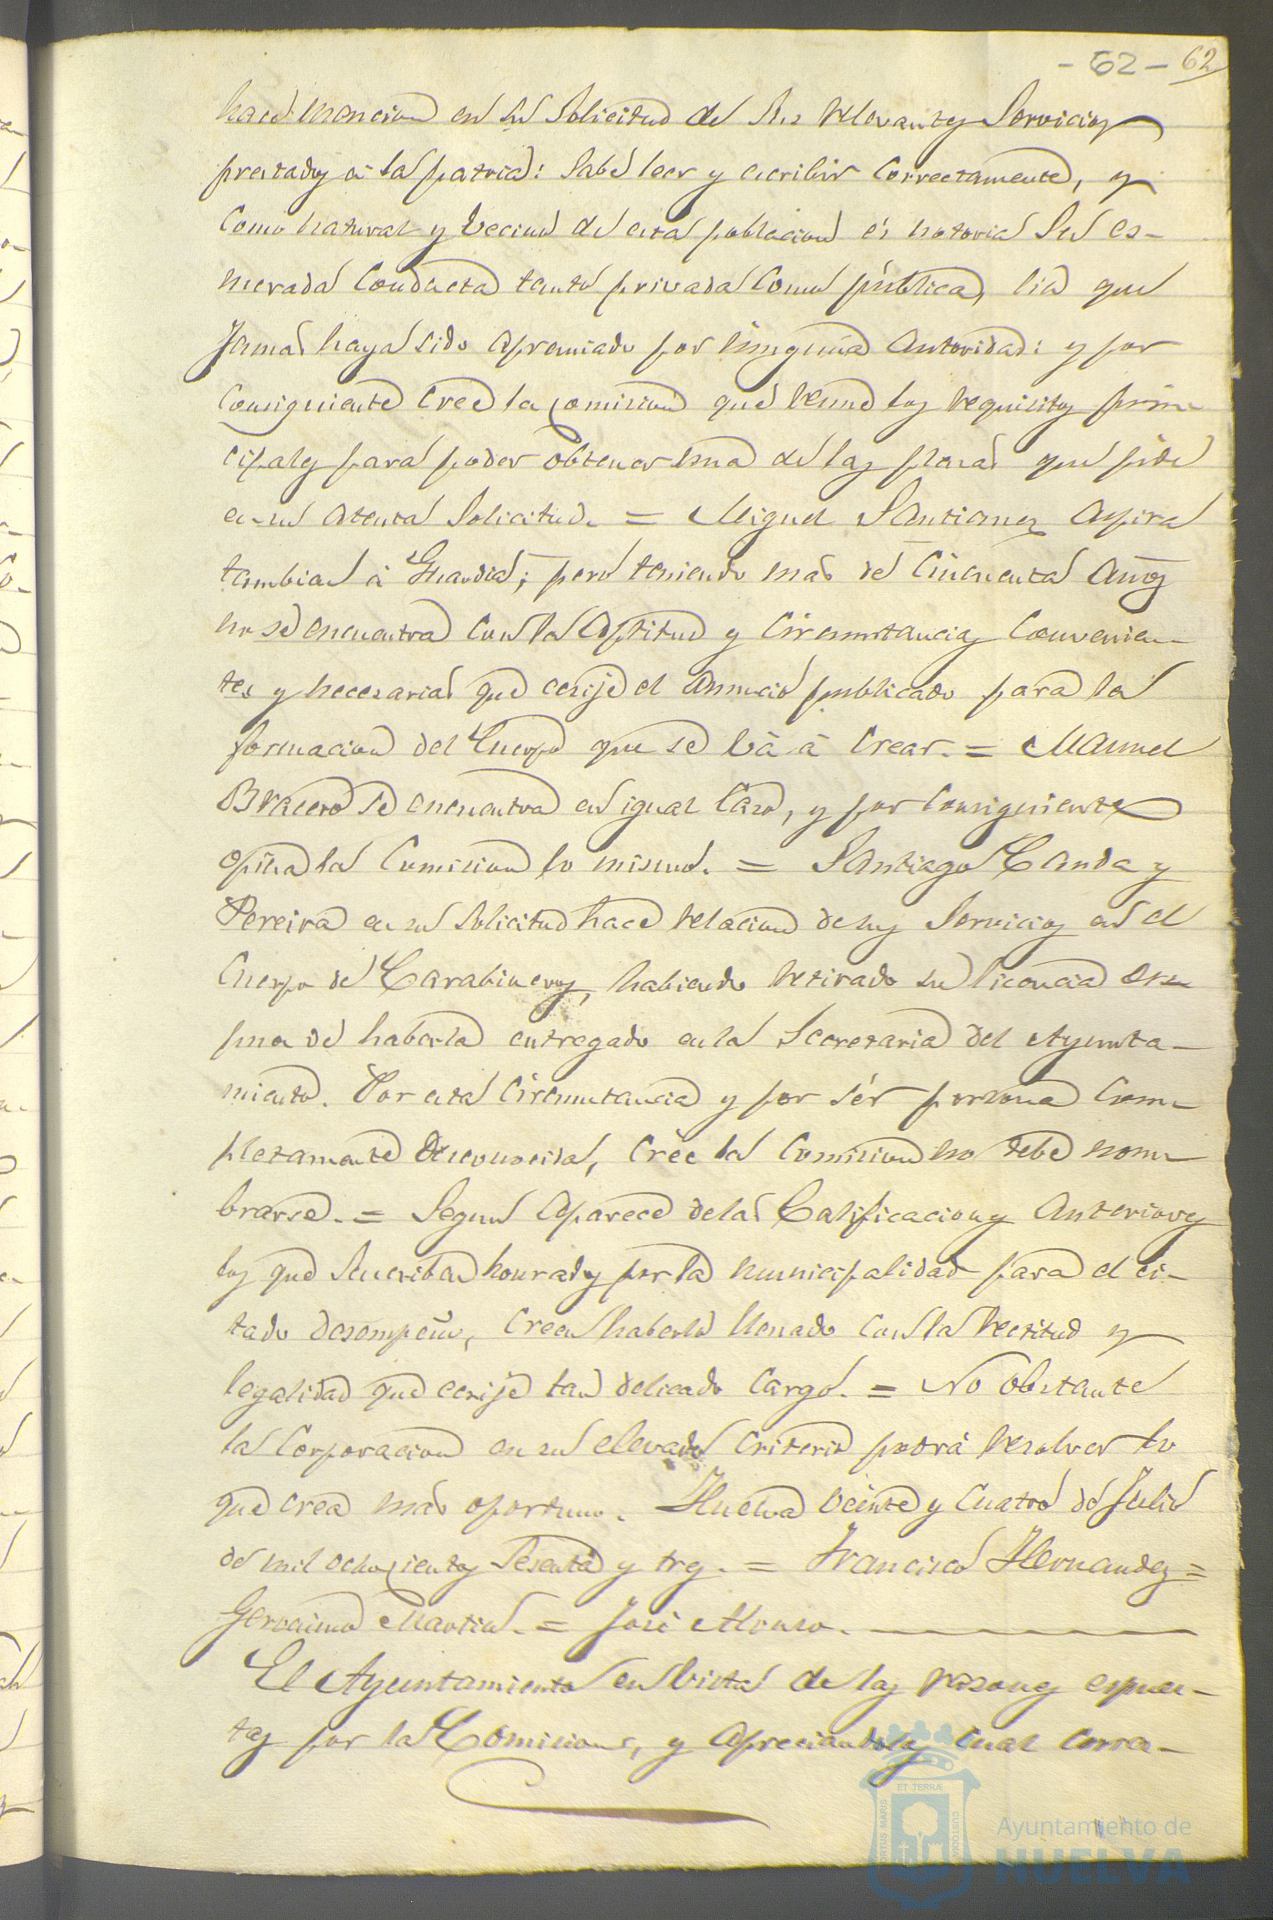 - 62 - 62
hace mencion en su Solicitud de sus relevantes Servicios
prestados á la patria: Sabe leer y escribir Correctamente, y
como natural y vecino de esta poblacion és notoria su es-
merada Conducta tanto privada como pública, sin que
Jamas haya sido apremiado por ninguna autoridad: y por
Consiguiente Cree la Comision que reune los requisitos prin-
cipales para poder obtener una de las plazas que pide
en su atenta Solicitud. = Miguel Santiago aspira
tambien á Guardia; pero teniendo mas de Cincuenta años
no se encuentra con la aptitud y Circunstancias Convenien-
tes y necesarias que ecsije el anuncio publicado para la
formacion del Cuerpo que se vá á crear. = Manuel
Bracero se encuentra en igual Caso, y por Consiguiente
opina la Comision lo mismo. = Santiago Canda y
Pereira en su solicitud hace relacion de sus Servicios en el
Cuerpo de Carabineros, habiendo retirado su licencia des-
pues de haberla entregado en la Secretaria del Ayunta-
miento. Por esta Circunstancia y por sér persona Com-
pletamente desconocida, Crée la Comision no debe nom-
brarse. = Segun aparece de las Calificaciones anteriores
los que Suscriben honrados por la municipalidad para el ci-
tado desempeño, Creen haberlo llenado con la rectitud y
legalidad que ecsije tan delicado Cargo. = No obstante
la Corporacion en su elevado Criterio podrá resolver lo
que crea mas oportuno. Huelva veinte y Cuatro de Julio
de mil ochocientos Sesenta y tres. = Francisco Hernandez =
Geronimo Martin. = José Alonso.
El Ayuntamiento en vista de las razones espues-
tas por la Comision, y apreciandolas cual corres-
Ayuntamiento de
HUELVA